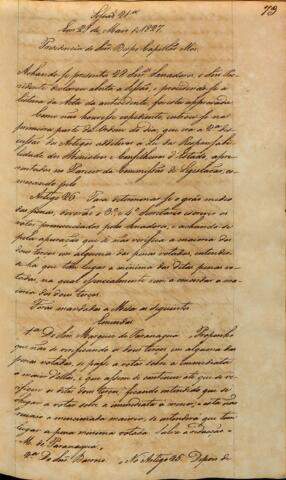 73
Sessão 21ª
Em 28 de Maio de 1827.
Presidencia do Senr. Bispo Capellão Mór.
Achando-se presentes 29 Senrs. Senadores, o Senr. Pre-
sidente declarou aberta a Sessão, e procedendo-se á
leitura da Acta da antecedente, foi esta approvada.
Como não houvesse expediente, entrou-se na
primeira parte da Ordem do dia, que era a 2ª dis-
cussão dos Artigos additivos á Lei da Responsabi-
lidade dos Ministros e Conselheiros d'Estado, apre-
sentados no Parecer da Commissão de Legislação, co-
meçando pelo
Artigo 26. Para determinar-se o gráo medio
das penas, deverão o 3º e 4º Secretarios escrever os
votos pronunciados pelos Senadores, e achando-se
pela apuração que se não verifica a maioria dos
dous terços em alguma das penas votadas, entender-
se-ha que tem lugar a minima das ditas penas vo-
tadas, na qual essencialmente vem a concordar a ma-
ioria dos dous terços.
Foram mandadas á Mesa as seguintes
Emendas
1ª Do Senr. Marquez de Paranaguá. Proponho
que não se verificando os dous terços em alguma das
penas votadas, se passe a votar sobre a immediata
a mais della, e que assim se continue até que se ve-
rifiquem os ditos dous terços, ficando entendido que se
chegar a votar sobre a immediata á menor, e esta não
reunir a mencionada maioria, se entenderá que tem
lugar a pena minima votada. Salva a redacção.
M. de Paranaguá.
2ª Do Senr. Barroso. No Artigo 25. Depois de